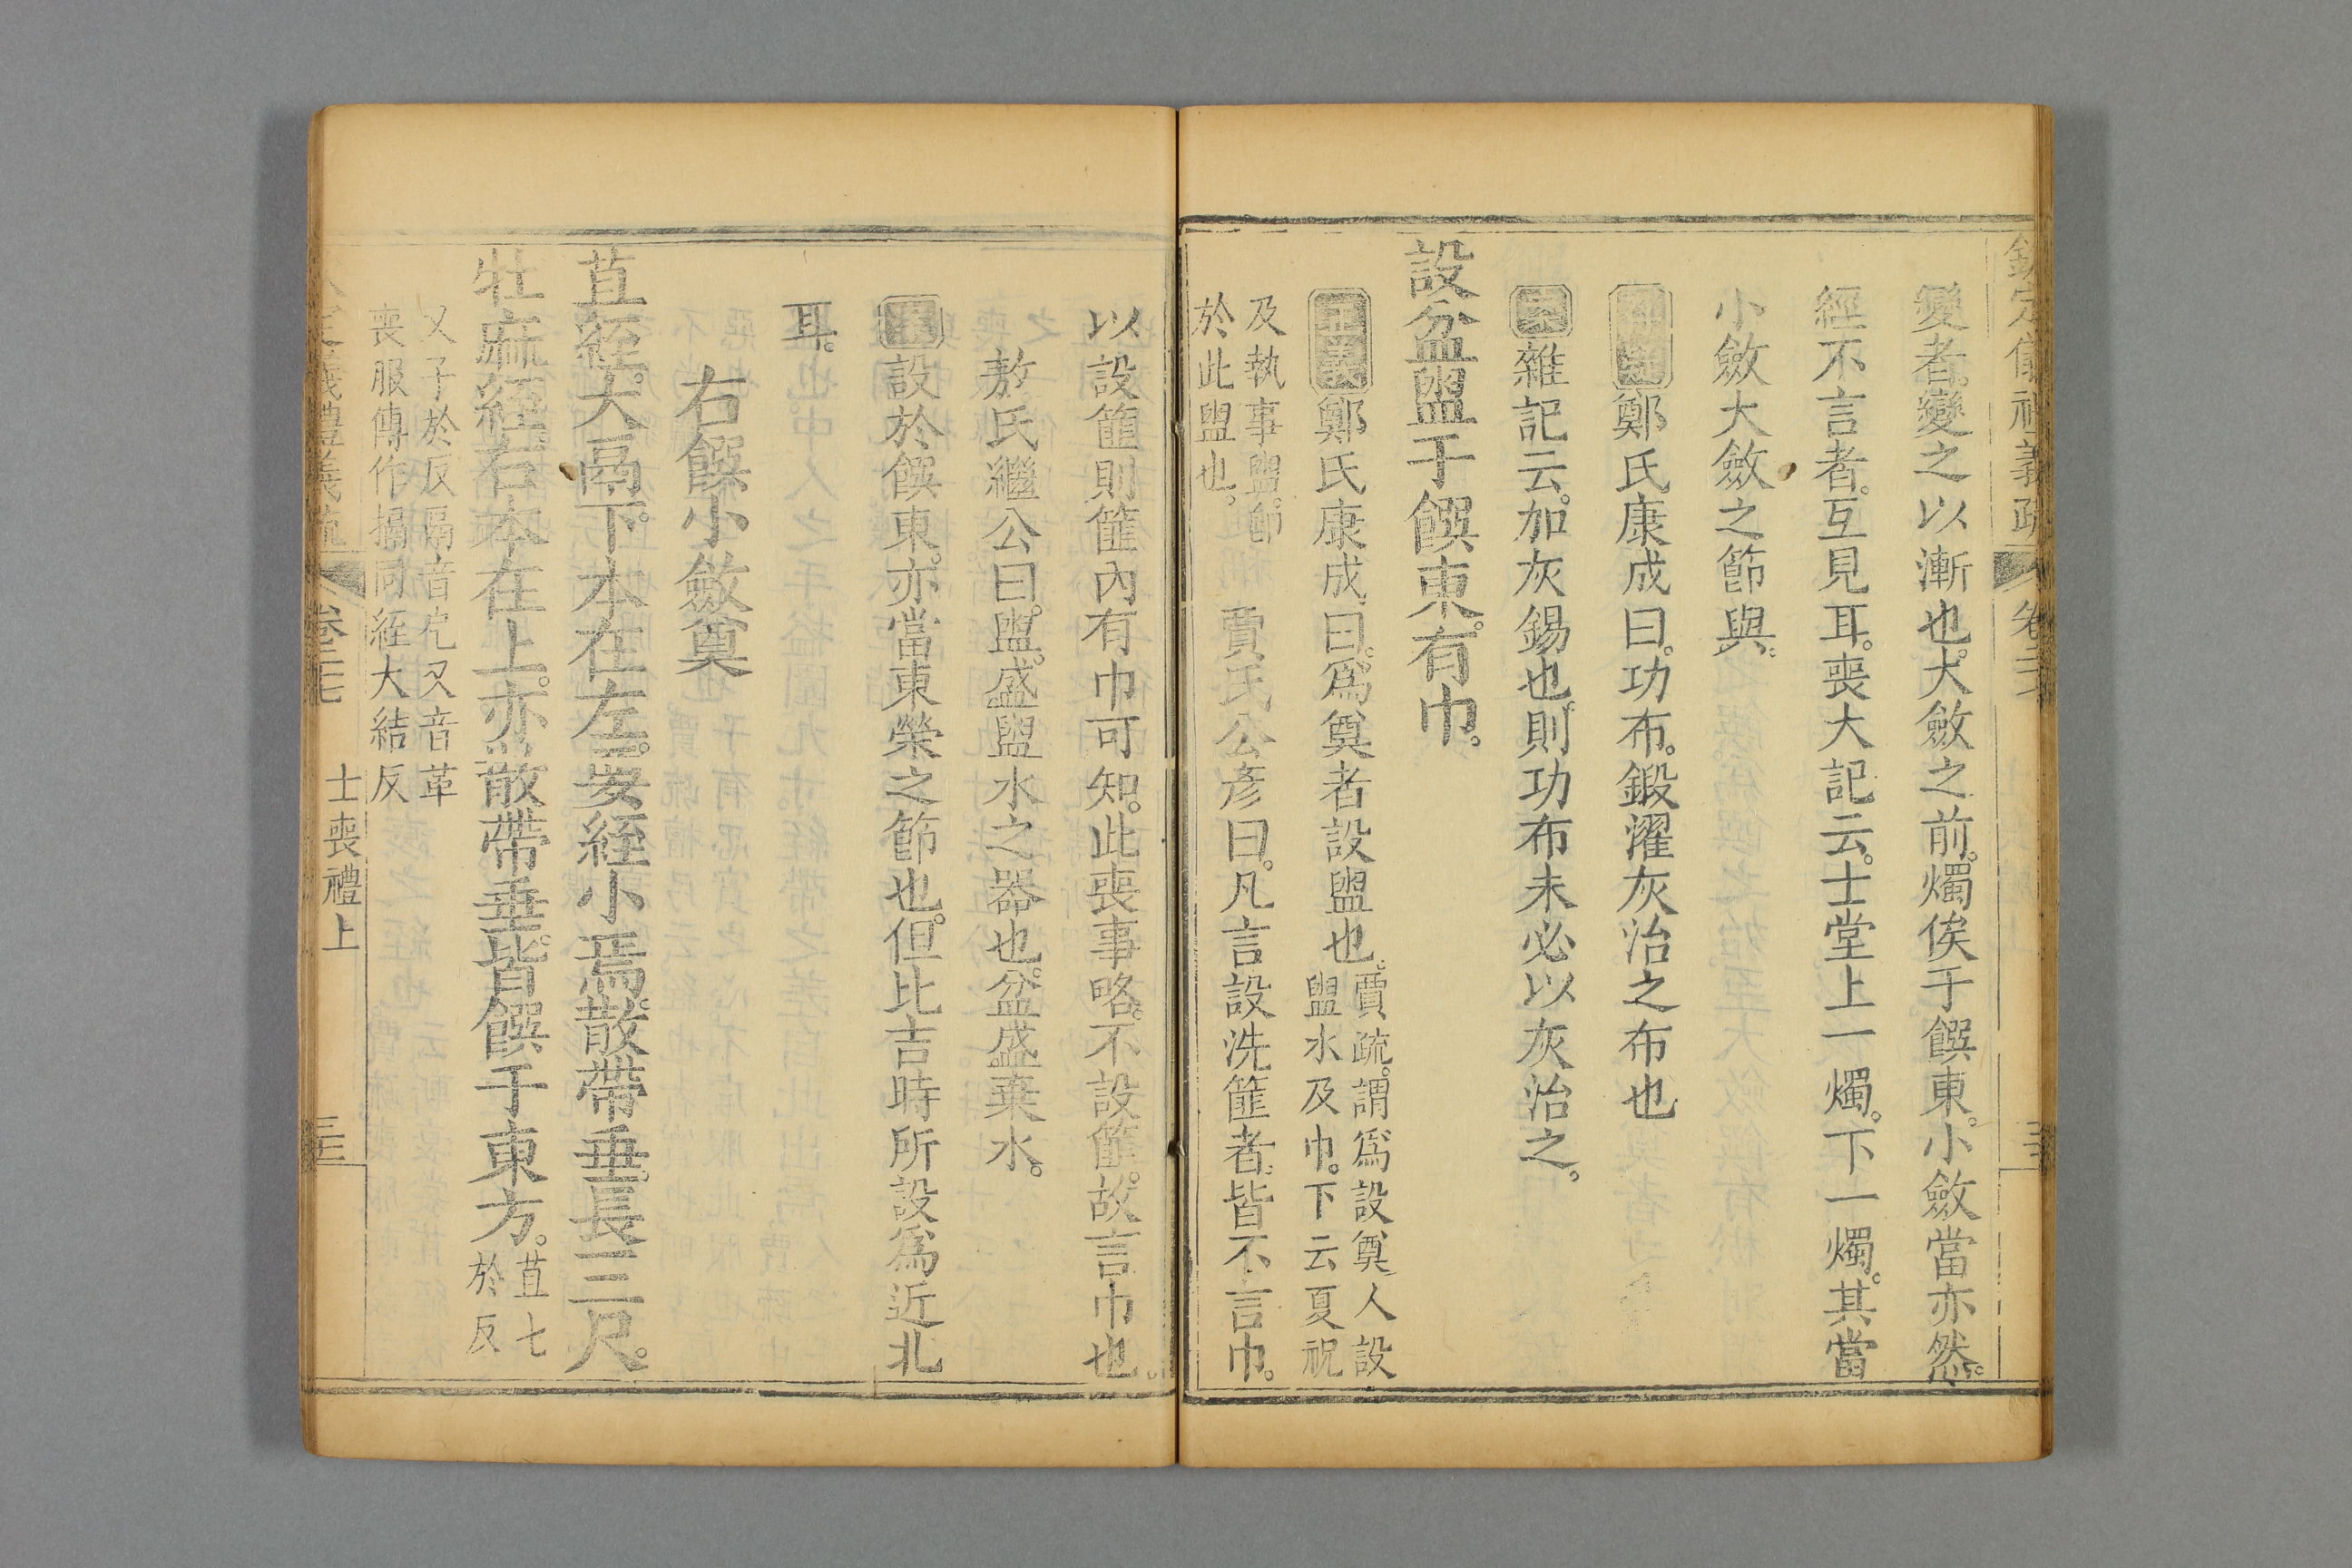 欽定儀禮義疏 卷二十七
變者變之以漸也大斂之前燭俟于饌東小斂當亦然
經不言者互見耳喪大記云士堂上一燭下一燭其當
小斂大斂之節與
鄭氏康成曰功布鍛濯灰治之布也
案雜記云加灰錫也則功布未必以灰治之
設盆盥于饌東有巾
正義鄭氏康成曰爲奠者設盥也賈疏謂爲設奠人設
盥水及巾下云夏祝
及執事盥卽
於此盥也 賈氏公彥曰凡言設洗篚者皆不言巾
以設篚則篚內有巾可知此喪事略不設篚故言巾也
敖氏繼公曰盥盛盥水之器也盆盛棄水
設於饌東亦當東榮之節也但比吉時所設爲近北
耳
右饌小斂奠
苴絰大鬲下本在左要絰小焉散帶垂長三尺
牡麻絰右本在上亦散帶垂皆饌于東方苴七
於反
又子於反鬲音戹又音革
喪服傳作搹同絰大結反
欽定儀禮義疏 卷二十七 士喪禮上